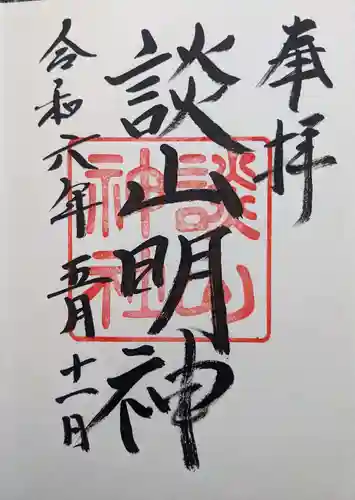 奉拝
談山明神
談山
神社
令和六年五月十一日